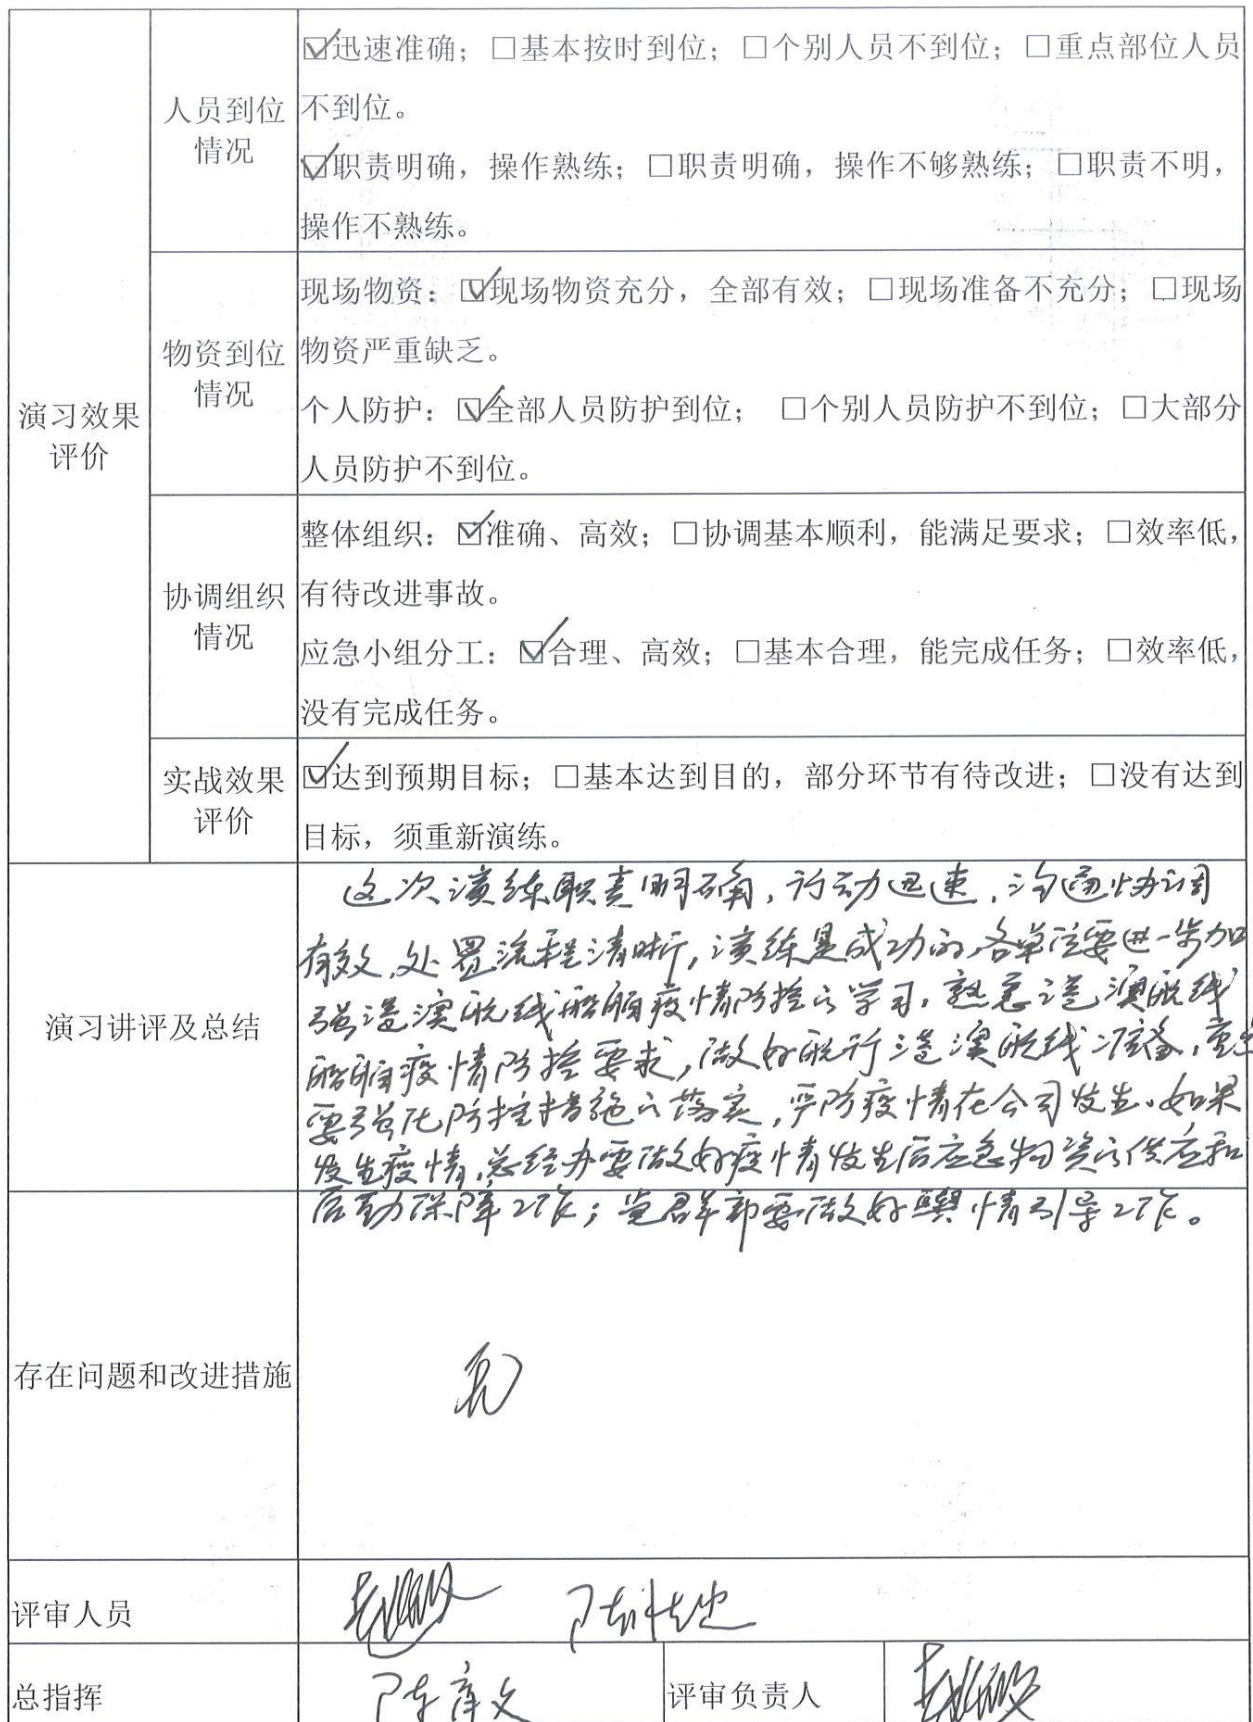 演习效果
评价
人员到位
情况
☑迅速准确；□基本按时到位；□个别人员不到位；□重点部位人员
不到位。
☑职责明确，操作熟练；□职责明确，操作不够熟练；□职责不明，
操作不熟练。
物资到位
情况
现场物资：☑现场物资充分，全部有效；□现场准备不充分；□现场
物资严重缺乏。
个人防护：☑全部人员防护到位；□个别人员防护不到位；□大部分
人员防护不到位。
协调组织
情况
整体组织：☑准确、高效；□协调基本顺利，能满足要求；□效率低，
有待改进事故。
应急小组分工：☑合理、高效；□基本合理，能完成任务；□效率低，
没有完成任务。
实战效果
评价
☑达到预期目标；□基本达到目的，部分环节有待改进；□没有达到
目标，须重新演练。
演习讲评及总结
这次演练职责明确，行动迅速，沟通协调
有效，处置流程清晰，演练是成功的，各单位要进一步加
强港澳航线船舶疫情防控的学习，熟悉港澳航线
船舶疫情防控要求，做好航行港澳航线准备，重点
要强化防控措施的落实，严防疫情在公司发生。如果
发生疫情，总经办要做好疫情发生后应急物资的供应和
后勤保障工作；党群部要做好舆情引导工作。
存在问题和改进措施
无
评审人员
总指挥
评审负责人